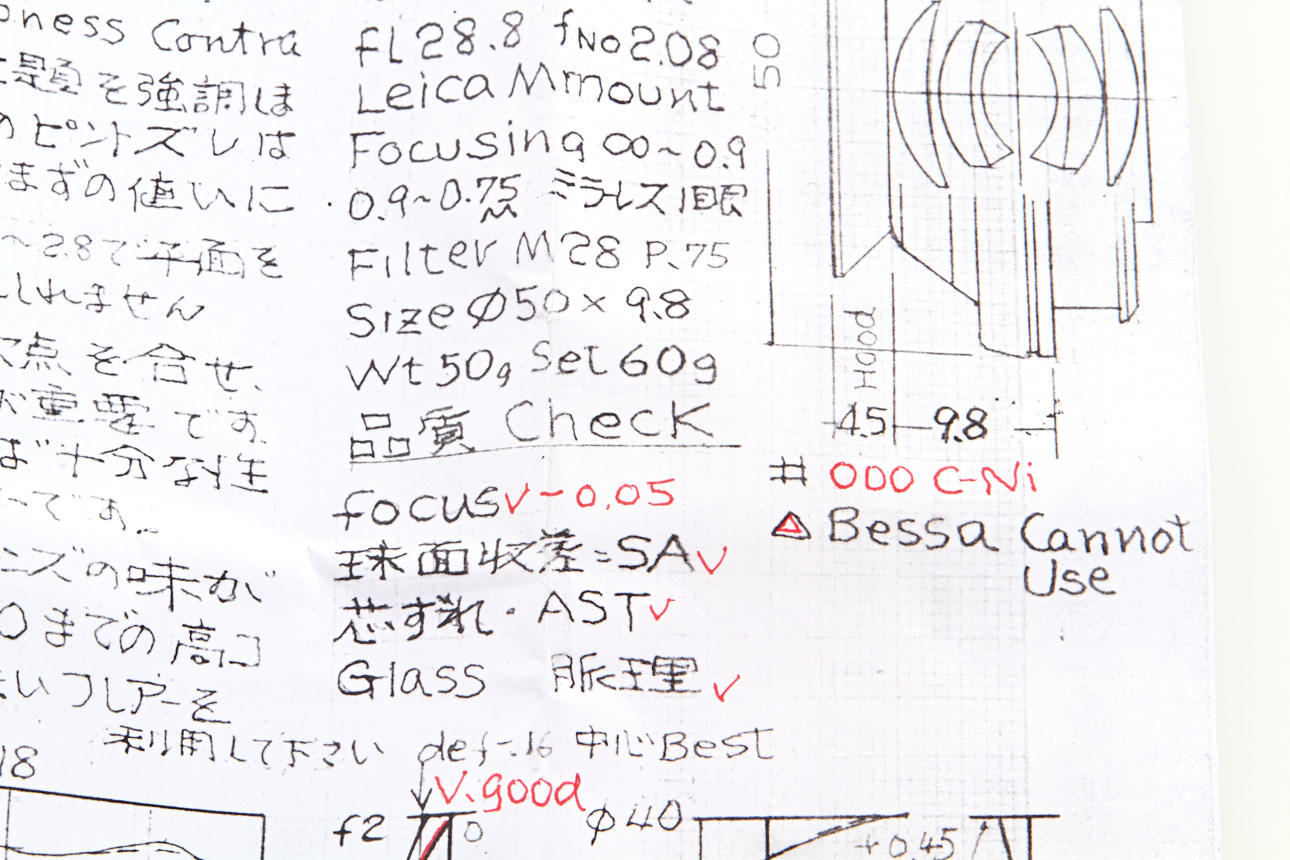 ness Contra
題を強調しま
のピントズレは
まずの値いに
~2.8で平面を
しれません
点を合せ、
が重要です。
ば十分な性
~です。
ンズの味が
0までの高コ
いフレアーを
利用して下さい
18
fl 28.8 fNo 2.08
Leica M mount
Focusing ∞~0.9
0.9~0.75 ミラーレス1眼
Filter M28 P.75
Size φ50 × 9.8
Wt 50g Set 60g
品質 Check
focus✓ -0.05
球面収差=SA✓
芯ずれ・AST✓
Glass 脈理✓
def-.16 中心Best
V.good
f2 0 φ40
+0.45
50
Hood
4.5 9.8
# 000 C-Ni
△ Bessa Cannot
Use